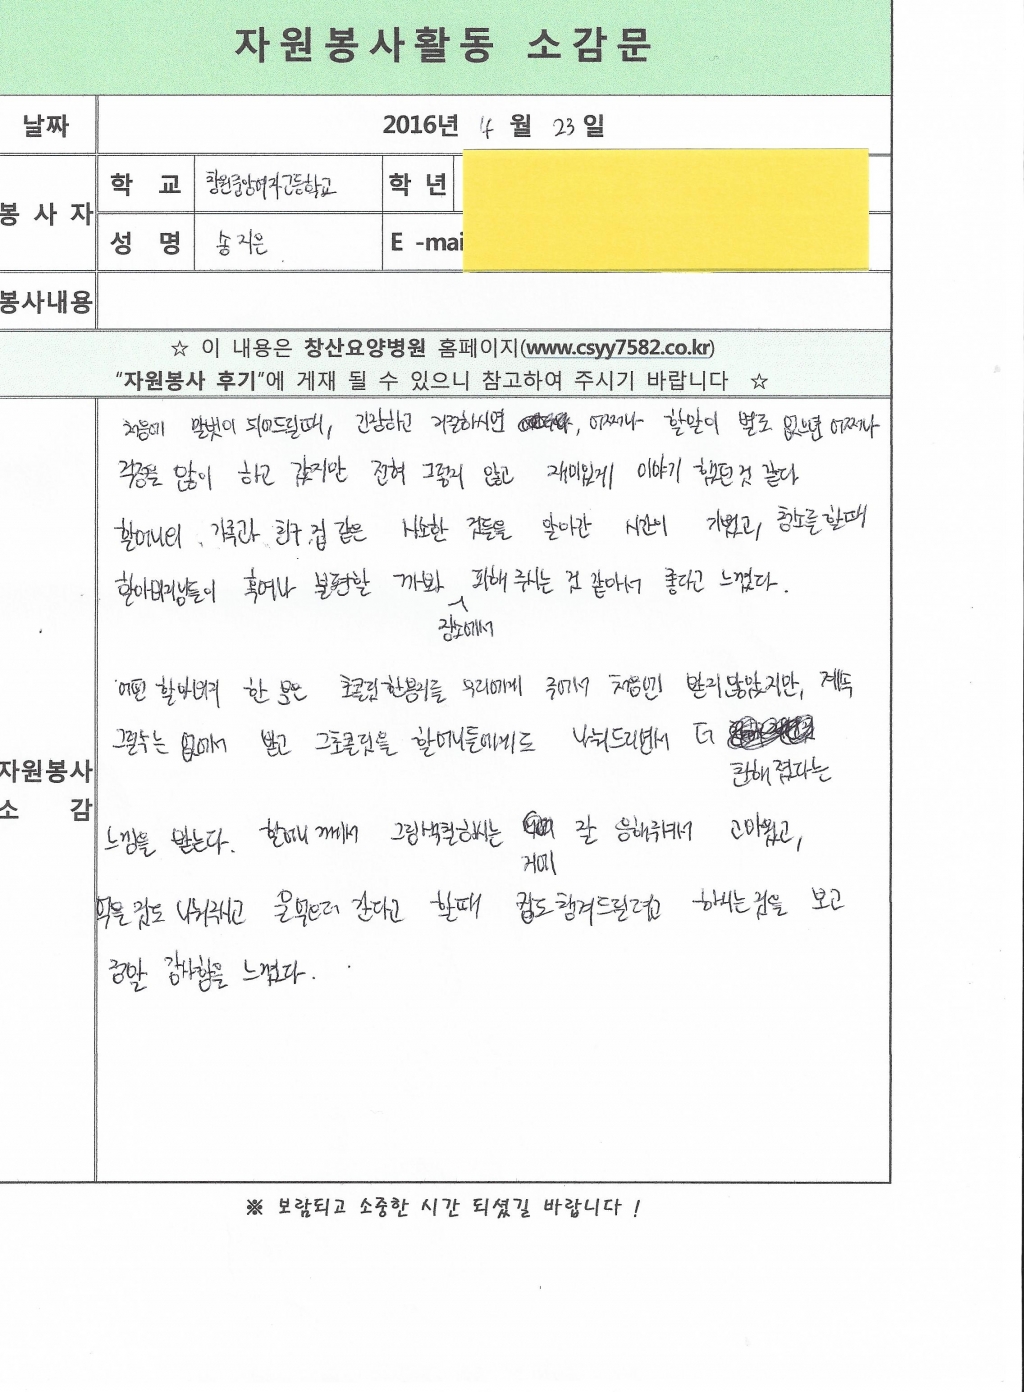 자원봉사활동 소감문
날짜 2016년 4월 23일
봉사자 학교 창원중앙여자고등학교 학년
성명 송지은 E-mai
봉사내용
☆ 이 내용은 창산요양병원 홈페이지(www.csyy7582.co.kr)
“자원봉사 후기”에 게재 될 수 있으니 참고하여 주시기 바랍니다 ☆
처음에 말벗이 되어드릴때, 긴장하고 거절하시면 어쩌나 할말이 별로 없으면 어쩌나
걱정을 많이 하고 갔지만 전혀 그렇지 않고 재미있게 이야기 했던것 같다
할머니의 가족과 친구, 집 같은 사소한 것들을 알아간 시간이 기뻤고, 청소를 할때
할아버지님들이 혹여나 불편할 까봐 피해 주시는 것 같아서 좋다고 느꼈다.
장소에서
어떤 할아버지 한 분은 초콜릿 한봉지를 우리에게 주어서 처음엔 받지 않았지만, 계속
그럴수는 없어서 받고 그 초콜릿을 할머니들에게도 나눠드리면서 더
친해 졌다는
느낌을 받는다. 할머니께서 그림색칠하시는 잘 응해주셔서 고마웠고,
거의
먹을 것도 나눠주시고 물 먹으러 간다고 할때 컵도 챙겨드릴려고 하시는 것을 보고
정말 감사함을 느꼈다.
자원봉사
소 감
※ 보람되고 소중한 시간 되셨길 바랍니다 !